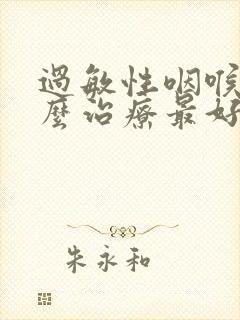 過敏性咽喉
麼治療最好
朱永和